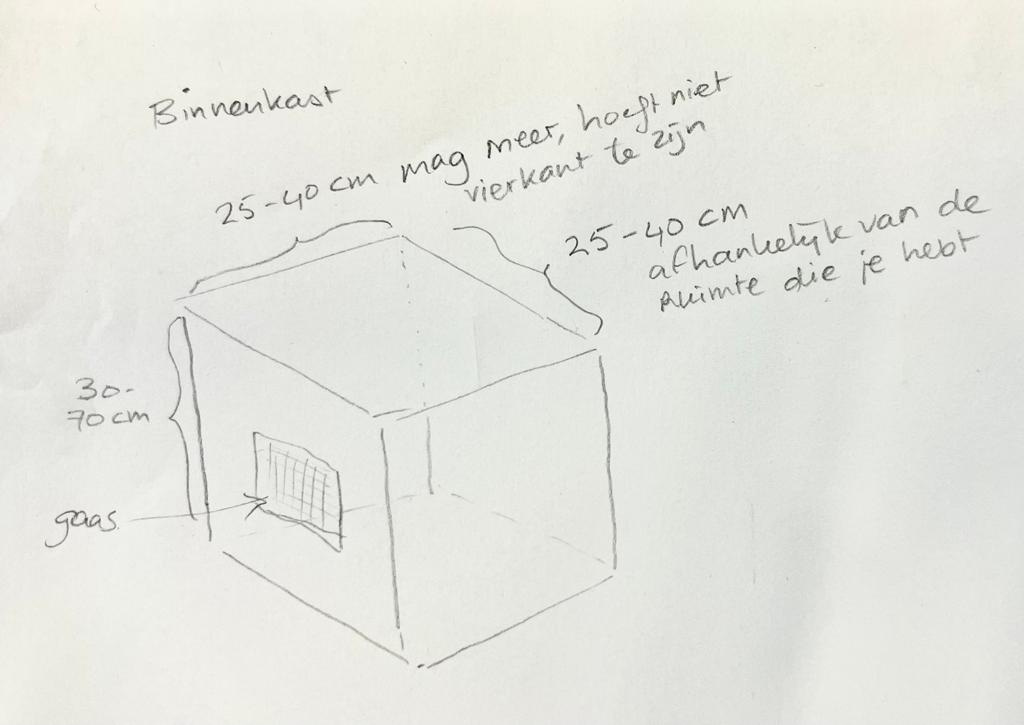 Binnenkast
25-40 cm mag meer, hoeft niet
vierkant te zijn
25-40 cm
afhankelijk van de
ruimte die je hebt
30-
70 cm
gaas